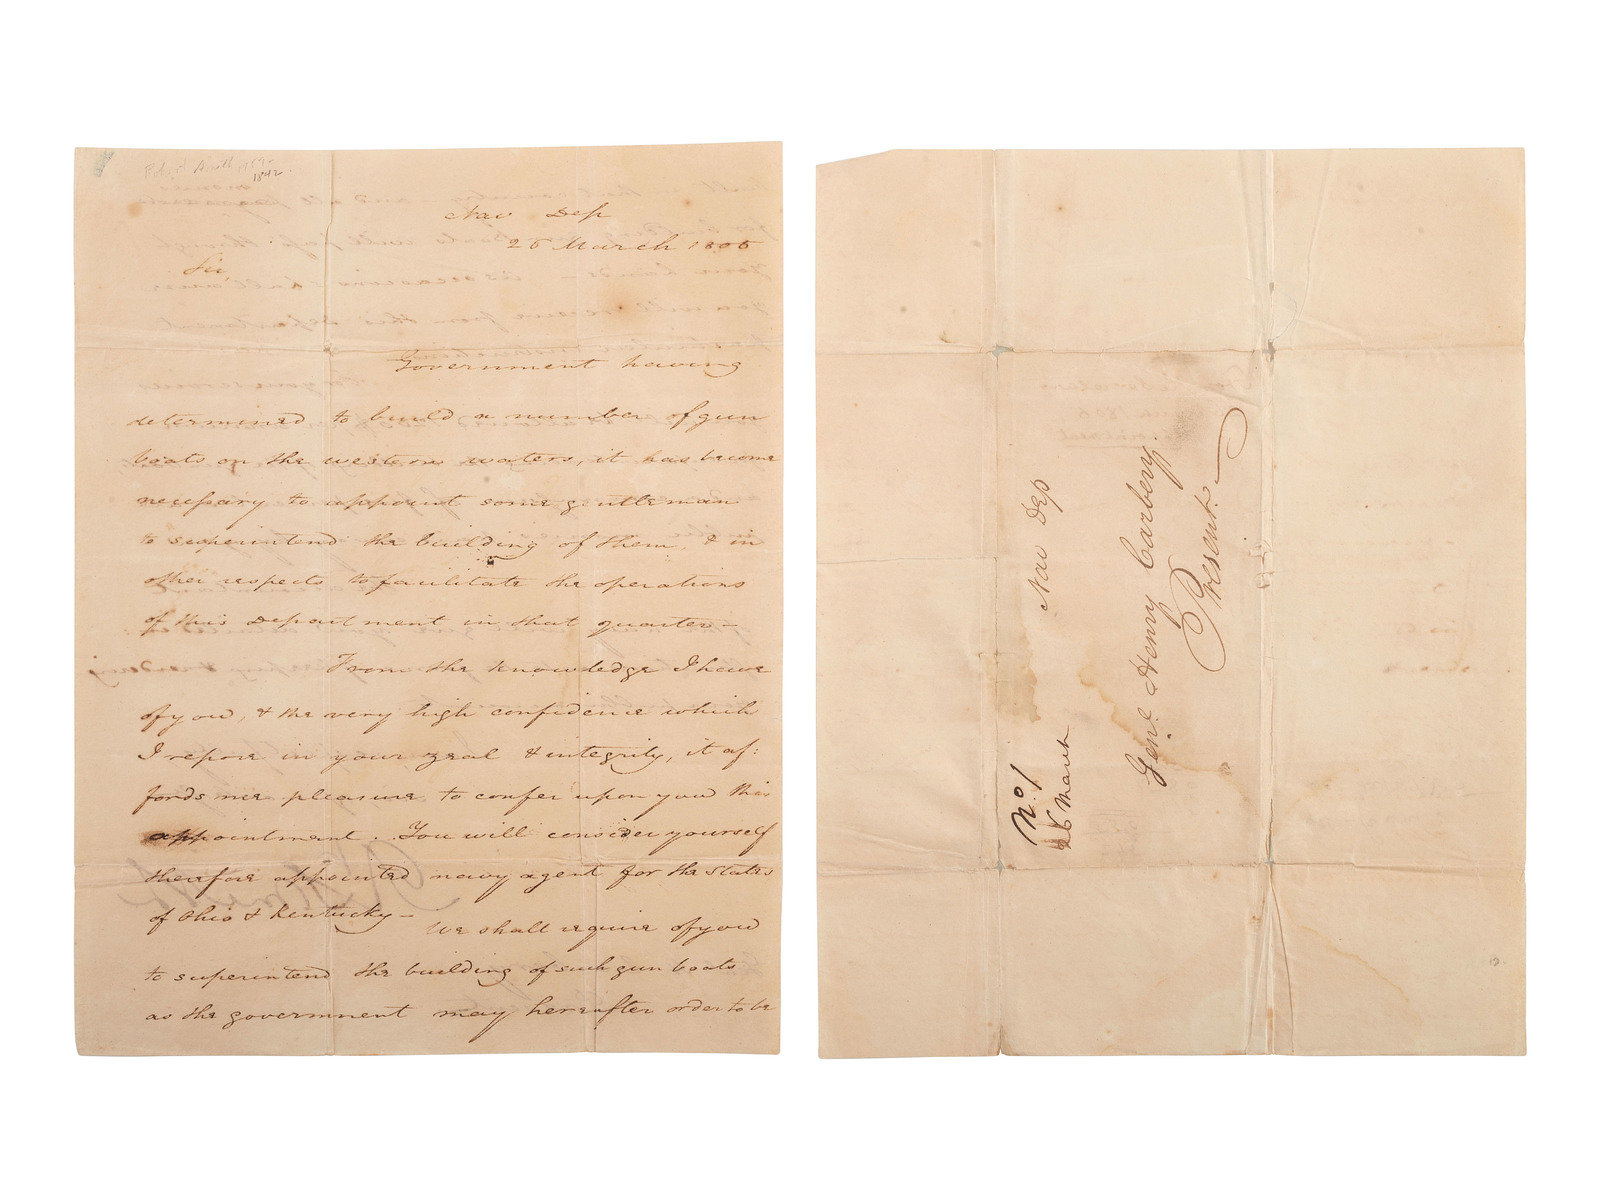 Robert Smith 1757-
1842.
Nav Dep
26 March 1806
Sir,
Government having
determined to build a number of gun
boats on the western waters, it has become
necessary to appoint some gentleman
to superintend the building of them, & in
other respects to facilitate the operations
of this Department in that quarter—
From the knowledge I have
of you, & the very high confidence which
I repose in your zeal & integrity, it af:
fords me pleasure to confer upon you this
appointment. You will consider yourself
therefore appointed navy agent for the States
of Ohio & Kentucky—
We shall require of you
to superintend the building of such gun boats
as the government may hereafter order to be
No. 1
26 March
Nav Dep
Genl. Henry Carbery
Present.